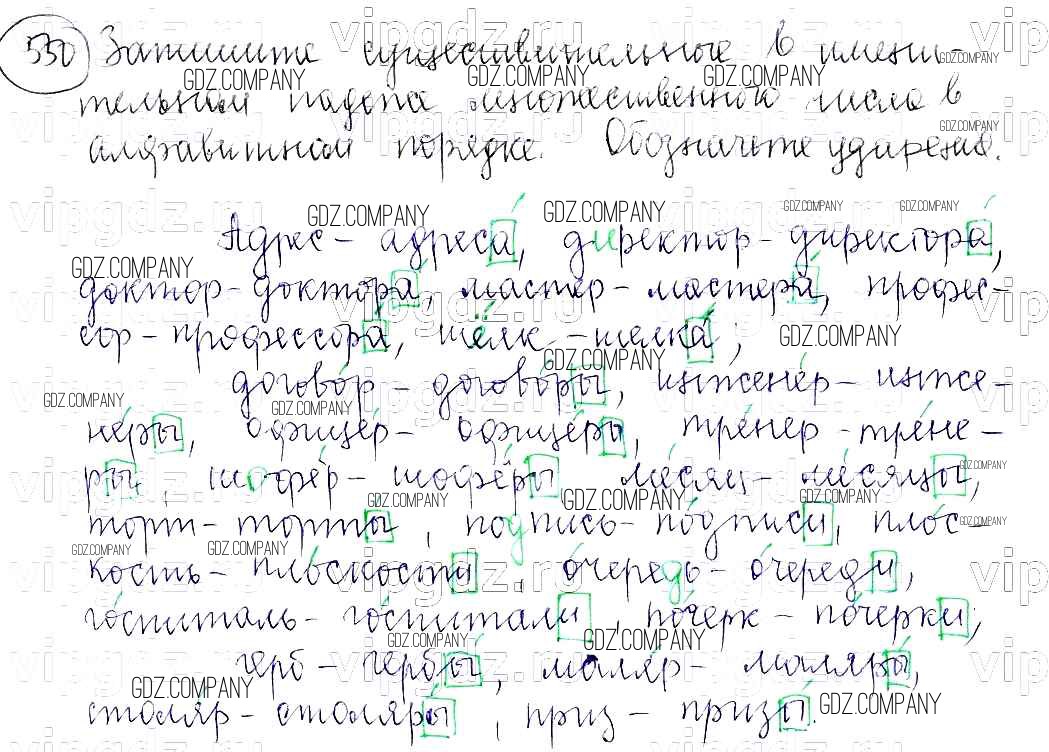 530 Запишите существительные в имени-
тельном падеже множественного числа в
алфавитном порядке. Обозначьте ударения.
Адрес - адреса́, директор - директора́,
доктор - доктора́, мастер - мастера́, профес-
сор - профессора́, шёлк - шелка́;
догово́р - догово́ры, инжене́р - инже-
не́ры, офице́р - офице́ры, тре́нер - тре́не-
ры, шофёр - шофёры, ме́сяц - ме́сяцы,
торт - то́рты, по́дпись - по́дписи, пло́с-
кость - пло́скости, о́чередь - о́череди,
го́спиталь - го́спитали, по́черк - по́черки;
герб - гербы́, маля́р - маляры́,
столяр - столяры́, приз - призы́.
vipgdz.ru
GDZ.COMPANY